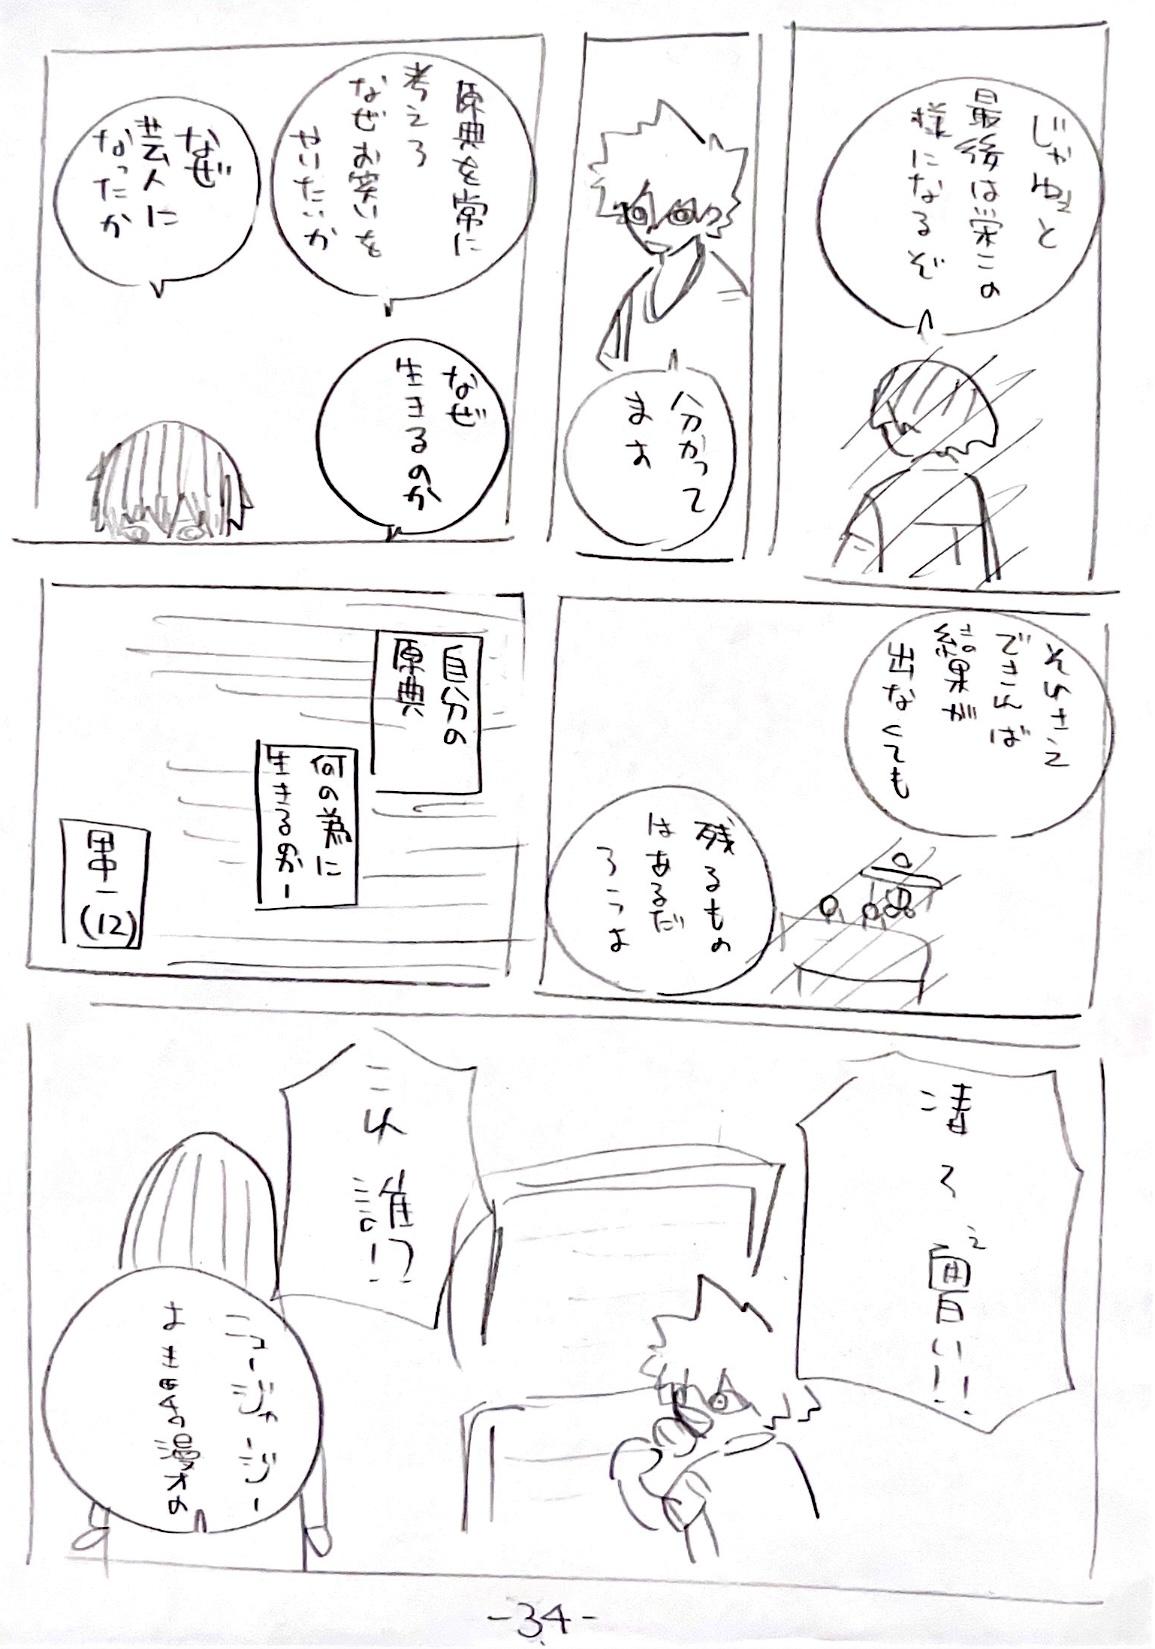 じゃねぇと
最後は栄この
様になるぞ
分かって
ます
原典を常に
考えろ
なぜお笑いを
やりたいか
なぜ
芸人に
なったか
なぜ
生きるのか
それさえ
できれば
結果が
出なくても
残るもの
はあるだ
ろうよ
自分の
原典
何の為に
生きるのかー
(12)
これ誰!?
ニュージャージー
-34-